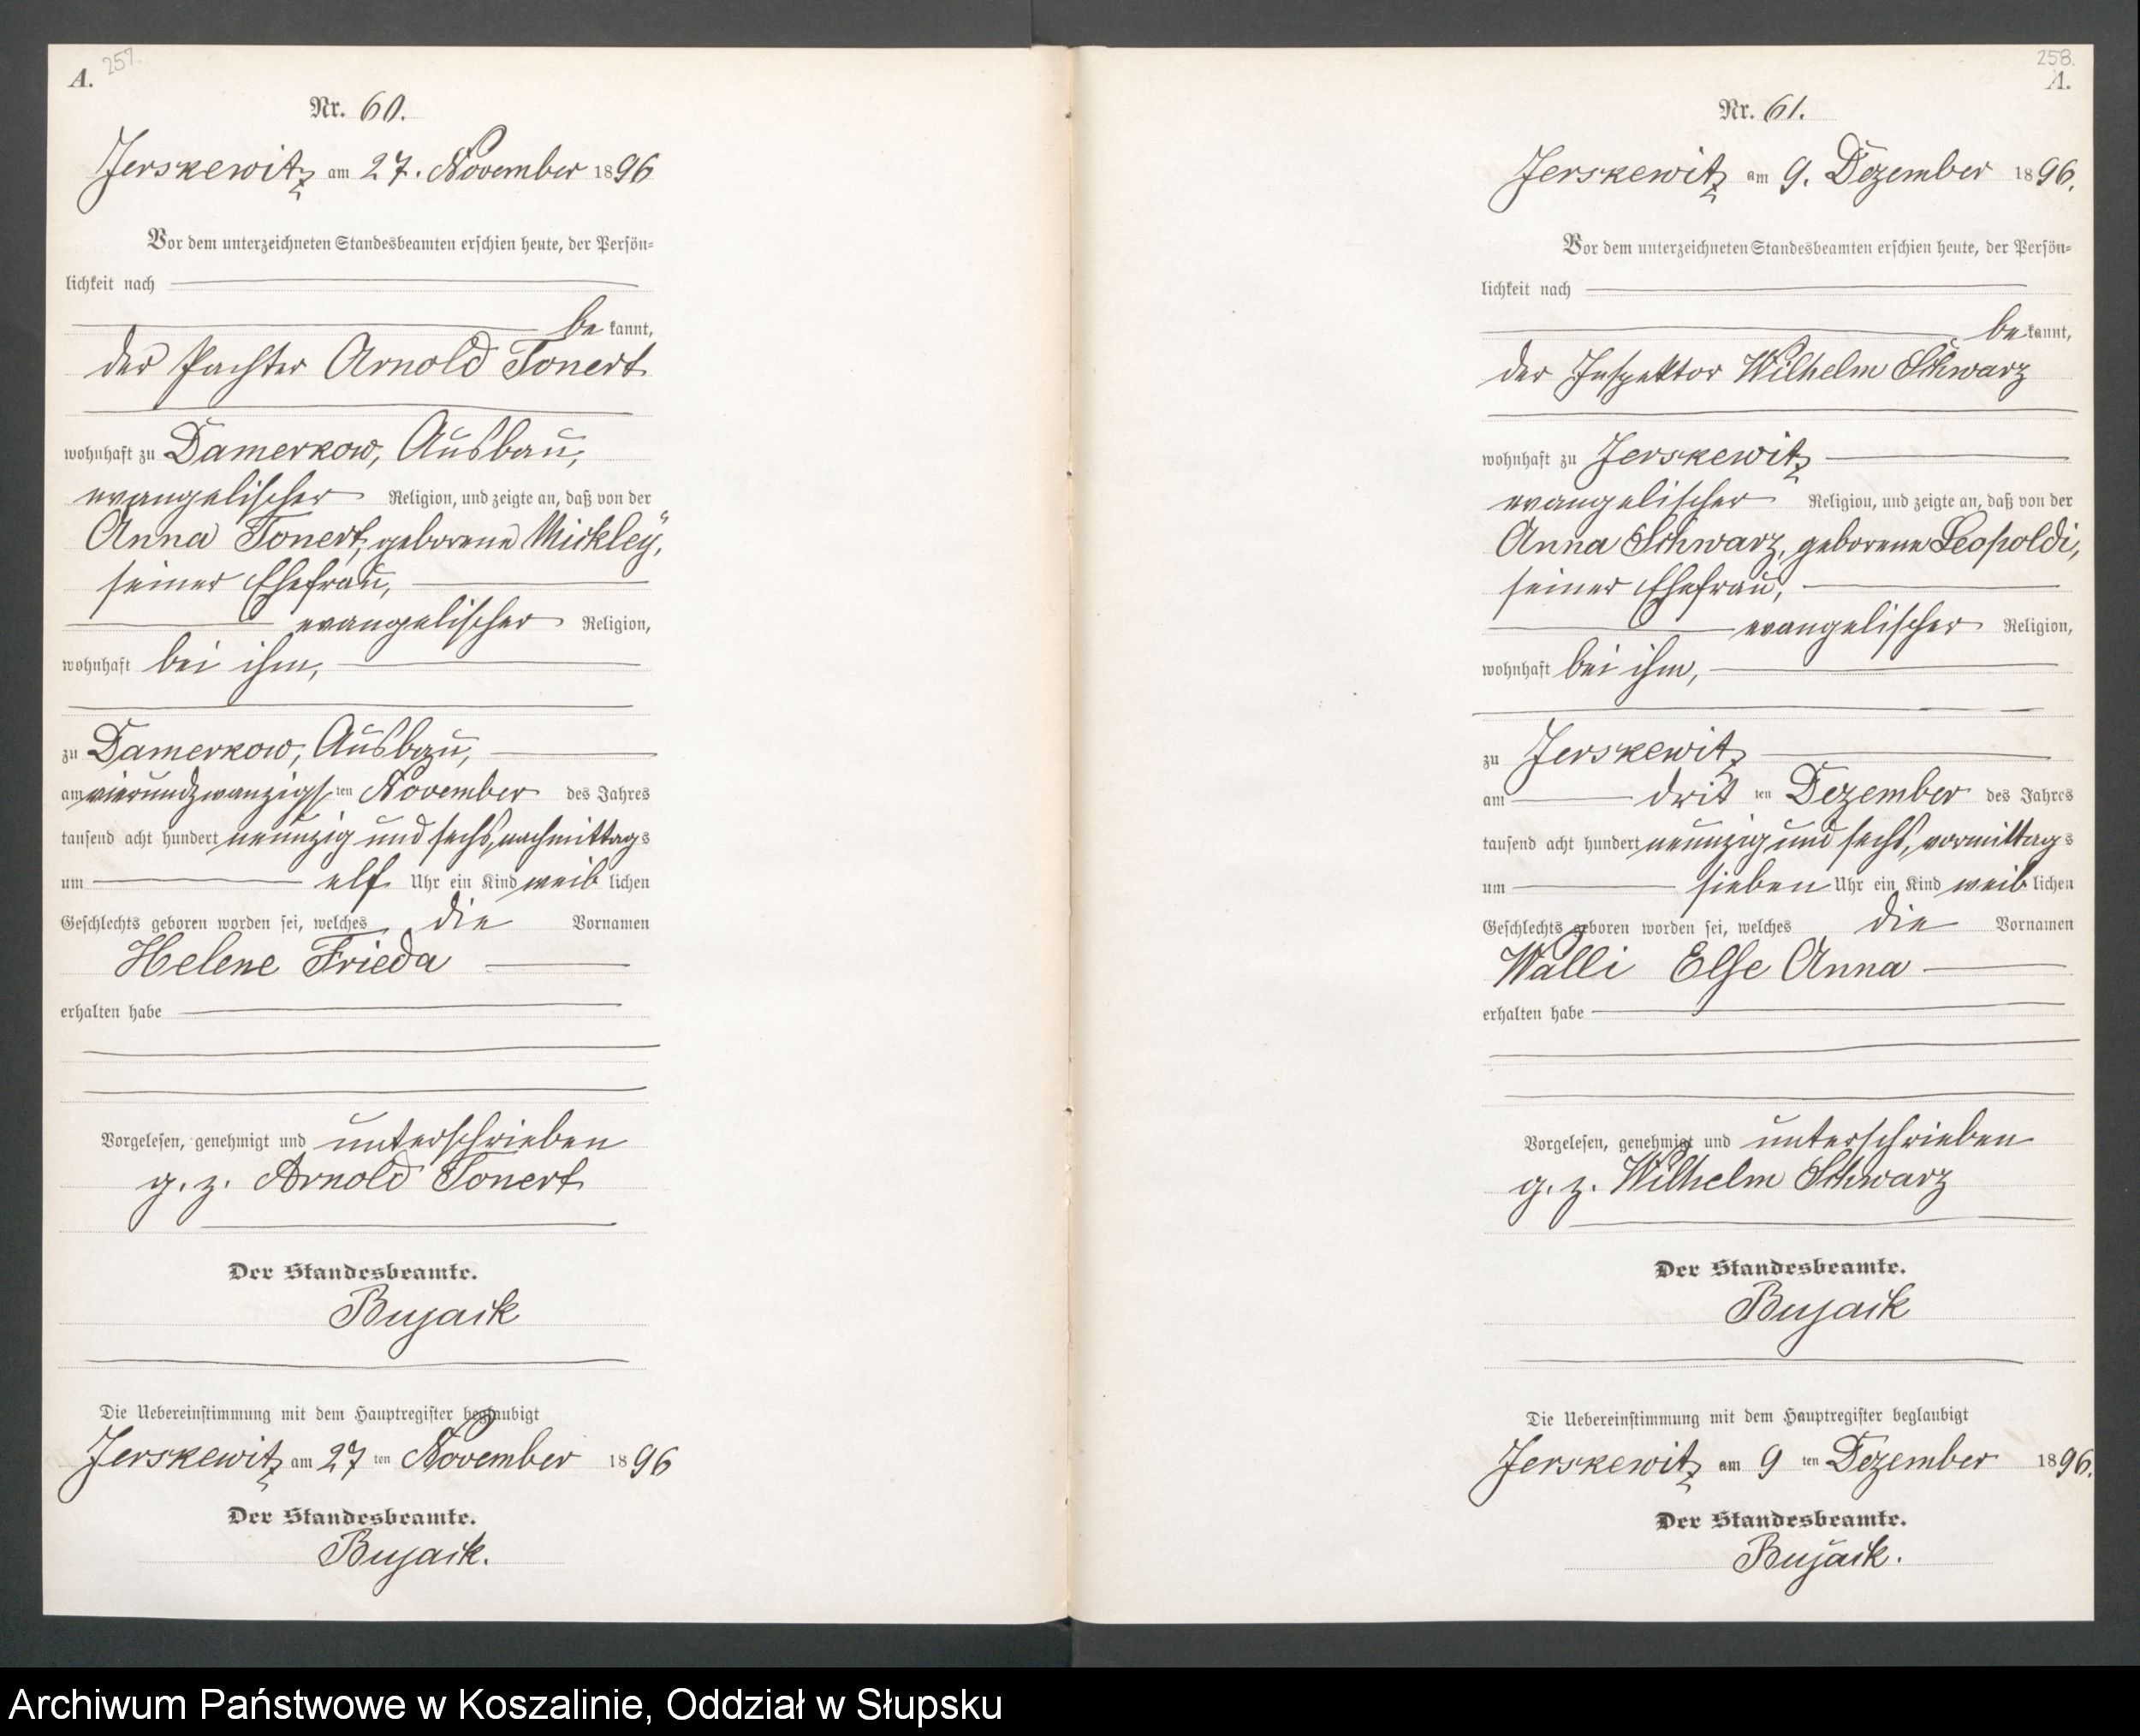 A. 257.
Nr. 60.
Jerskewitz am 27. November 1896
Vor dem unterzeichneten Standesbeamten erschien heute, der Persön-
lichkeit nach
bekannt,
der Pachter Arnold Tonert
wohnhaft zu Damerkow, Ausbau,
evangelischer Religion, und zeigte an, daß von der
Anna Tonert, geborene Mickley,
seiner Ehefrau,
evangelischer Religion,
wohnhaft bei ihm,
zu Damerkow, Ausbau,
am vierundzwanzigsten November des Jahres
tausend acht hundert neunzig und sechs, nachmittags
um elf Uhr ein Kind weiblichen
Geschlechts geboren worden sei, welches die Vornamen
Helene Frieda
erhalten habe
Vorgelesen, genehmigt und unterschrieben
g. z. Arnold Tonert
Der Standesbeamte.
Bujack
Die Uebereinstimmung mit dem Hauptregister beglaubigt
Jerskewitz am 27 ten November 1896
Der Standesbeamte.
Bujack.
258.
A.
Nr. 61.
Jerskewitz am 9. Dezember 1896.
Vor dem unterzeichneten Standesbeamten erschien heute, der Persön-
lichkeit nach
bekannt,
der Inspektor Wilhelm Schwarz
wohnhaft zu Jerskewitz
evangelischer Religion, und zeigte an, daß von der
Anna Schwarz, geborene Leopoldi,
seiner Ehefrau,
evangelischer Religion,
wohnhaft bei ihm,
zu Jerskewitz
am dritten Dezember des Jahres
tausend acht hundert neunzig und sechs, vormittags
um sieben Uhr ein Kind weiblichen
Geschlechts geboren worden sei, welches die Vornamen
Walli Else Anna
erhalten habe
Vorgelesen, genehmigt und unterschrieben
g. z. Wilhelm Schwarz
Der Standesbeamte.
Bujack
Die Uebereinstimmung mit dem Hauptregister beglaubigt
Jerskewitz am 9 ten Dezember 1896.
Der Standesbeamte.
Bujack.
Archiwum Państwowe w Koszalinie, Oddział w Słupsku